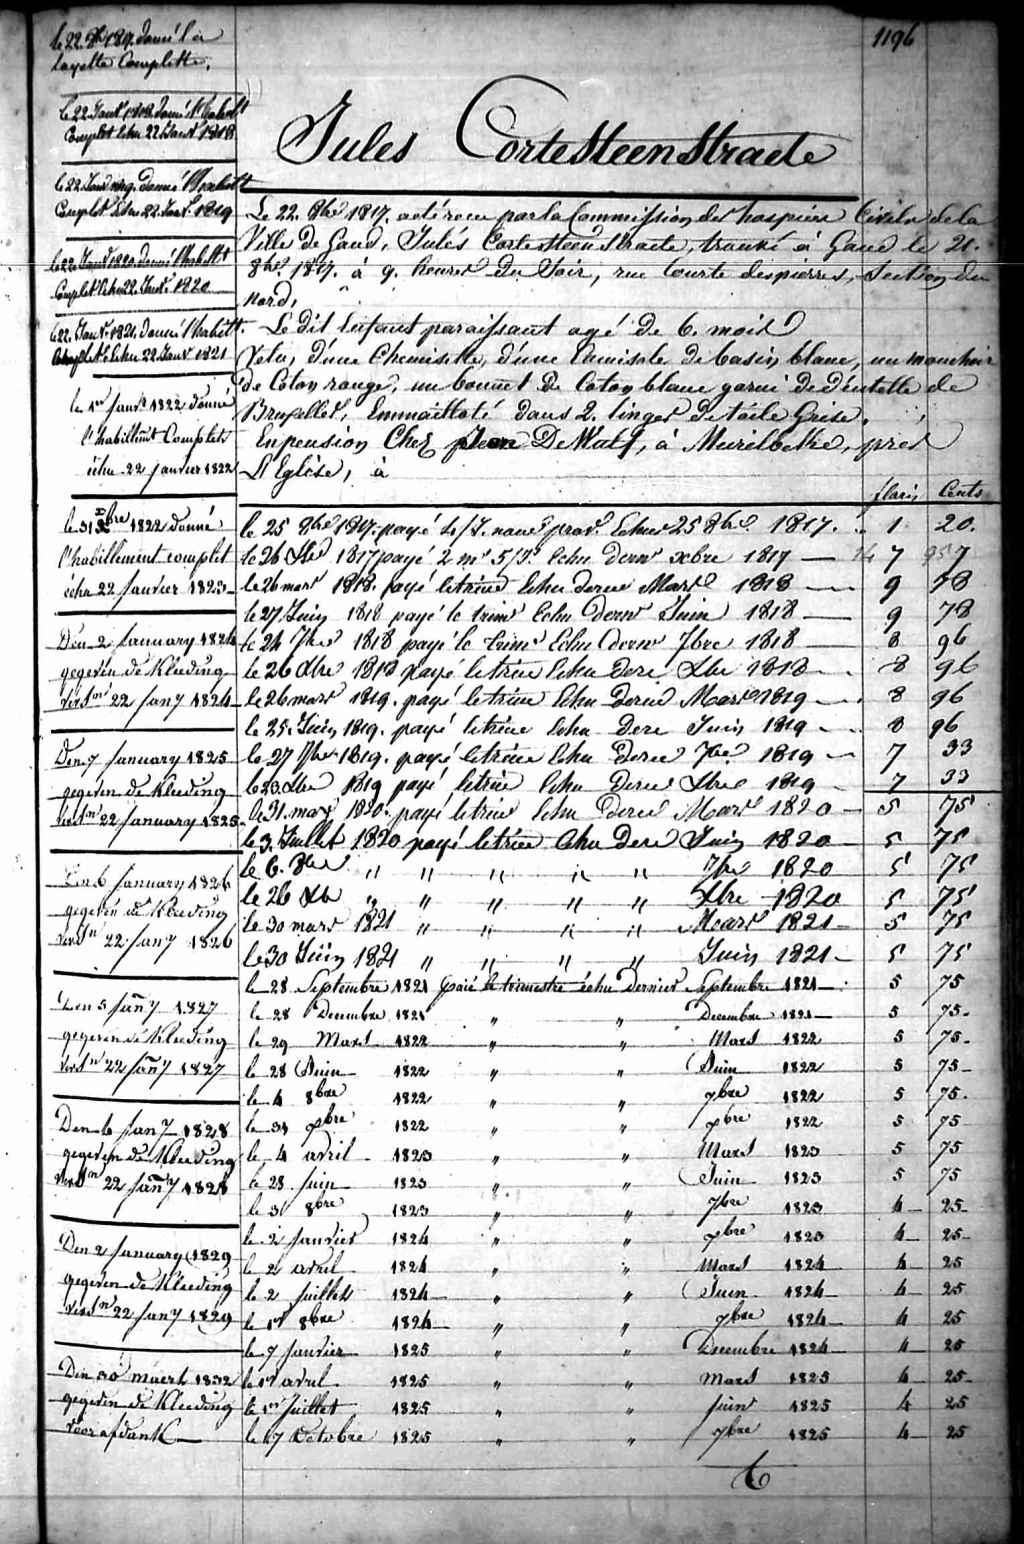 1196
le 22. 8bre 1817. donné la
layette Complette.
le 22 Janvr 1818 donné
Complet Echu 22 Janvr 1818
le 22 Janvr 1819. donné
Complet Echu 22 Janvr 1819
le 22 Janvr 1820. donné
Complet Echu 22 Janvr 1820
le 22. Janvr. 1821. donné
Echu 22 Janvr 1821
le 1er Janvr 1822 donné
l'habillmt Complet
échu 22 janvier 1822
le 31 Xbre 1822 donné
l'habillement complet
échu 22 janvier 1823
Den 2 January 1824
gegeven de Kleeding
versn 22 Jany 1824
Den 7 January 1825
gegeven de Kleeding
versn 22 January 1825
Den 6 January 1826
gegeven de Kleeding
versn 22 Jany 1826
Den 5 Jany 1827
gegeven de Kleeding
versn 22 Jany 1827
Den 6 Jany 1828
gegeven de Kleeding
versn 22 Jany 1828
Den 2 January 1829
gegeven de Kleeding
versn 22 Jany 1829
Den 30 maert 1832
gegeven de Kleeding
voor afdank
Jules Cortesteenstraete
Le 22. 8bre 1817. a été recu par la Commission des hospices Civils de la
Ville de Gand, Jules Cortesteenstraete, trouvé à Gand le 21.
8bre 1817. à 9. heures du Soir, rue Courte des pierres, Section du
Nord,
Le dit Enfant paraissant agé de 6. mois
Vetu, d'une Chemisette, d'une Camisole de basin blanc, un mouchoir
de Coton rouge, un bonnet de Coton blanc garni de dentelle de
Bruxelles, Emmailloté dans 2. linges de toile Grise.
En pension Chez De Wals, à Meirelbeke, pres
L'Eglise, à
floris Cents
le 25 9bre 1817. payé Echu 25 8bre. 1817. 1 20.
le 26 Xbre 1817 payé 2 ms 5/J. echu dernr xbre 1817 7 57
le 26 mars 1818. payé le trime Echu dernr Mars 1818 9 78
le 27 Juin 1818 payé le trimr Echu dernr Juin 1818 9 78
le 24 7bre 1818 payé le trimr Echu dernr 7bre 1818 8 96
le 26 Xbre 1818 payé le trim Echu dernr Xbre 1818 8 96
le 26 mars 1819. payé le trim Echu dernr Mars 1819 8 96
le 25. Juin 1819. payé le trim Echu dernr Juin 1819 8 96
le 27 7bre 1819. payé le trim Echu dernr 7bre 1819 7 33
le 23 Xbre 1819 payé le trim Echu dernr Xbre 1819 7 33
le 31. mars 1820. payé le trim Echu dernr Mars 1820 5 75
le 3. Juillet 1820 payé le trim Echu dernr Juin 1820 5 75
le 6. 8bre " " " " " 7bre 1820 5 75
le 26 Xbre " " " " " Xbre 1820 5 75
le 30 mars 1821 " " " " Mars 1821 5 75
le 30 Juin 1821 " " " " Juin 1821 5 75
le 28 Septembre 1821 payé le trimestre échu dernier Septembre 1821 5 75
le 28 Decembre 1821 " " Decembre 1821 5 75
le 29 Mars 1822 " " Mars 1822 5 75
le 28 Juin 1822 " " Juin 1822 5 75
le 4 8bre 1822 " " 7bre 1822 5 75
le 31 xbre 1822 " " xbre 1822 5 75
le 4 avril 1823 " " Mars 1823 5 75
le 28 juin 1823 " " Juin 1823 5 75
le 3 8bre 1823 " " 7bre 1823 4 25
le 2 janvier 1824 " " xbre 1823 4 25
le 2 avril 1824 " " Mars 1824 4 25
le 2 juillet 1824 " " Juin 1824 4 25
le 1er 8bre 1824 " " 7bre 1824 4 25
le 7 janvier 1825 " " Decembre 1824 4 25
le 1er avril 1825 " " mars 1825 4 25
le 1er Juillet 1825 " " juin 1825 4 25
le 7 Octobre 1825 " " 7bre 1825 4 25